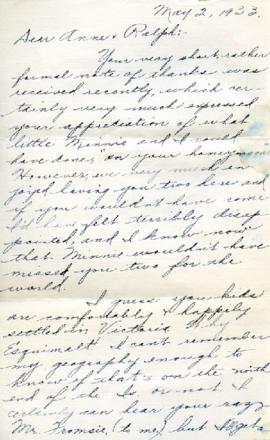 May 2, 1933.
Dear Anne & Ralph:-
Your very short, rather
formal note of thanks was
received recently, which cer-
tainly very much expressed
your appreciation of what
little Minnie and I could
have done, "on your honeymoon"
However, we very much en-
joyed having you two here and
if you wouldn't have come
I'd have felt terribly disap
pointed, and I know now
that Minnie wouldn't have
missed you two for the
world.
I guess you kids
are comfortably & happily
settled in Victoria
Esquimalt I can't remember
my geography enough to
know if that's on the north
end of the Is. or not I
certainly can hear your say
Mr. Fromsie, (to me) but